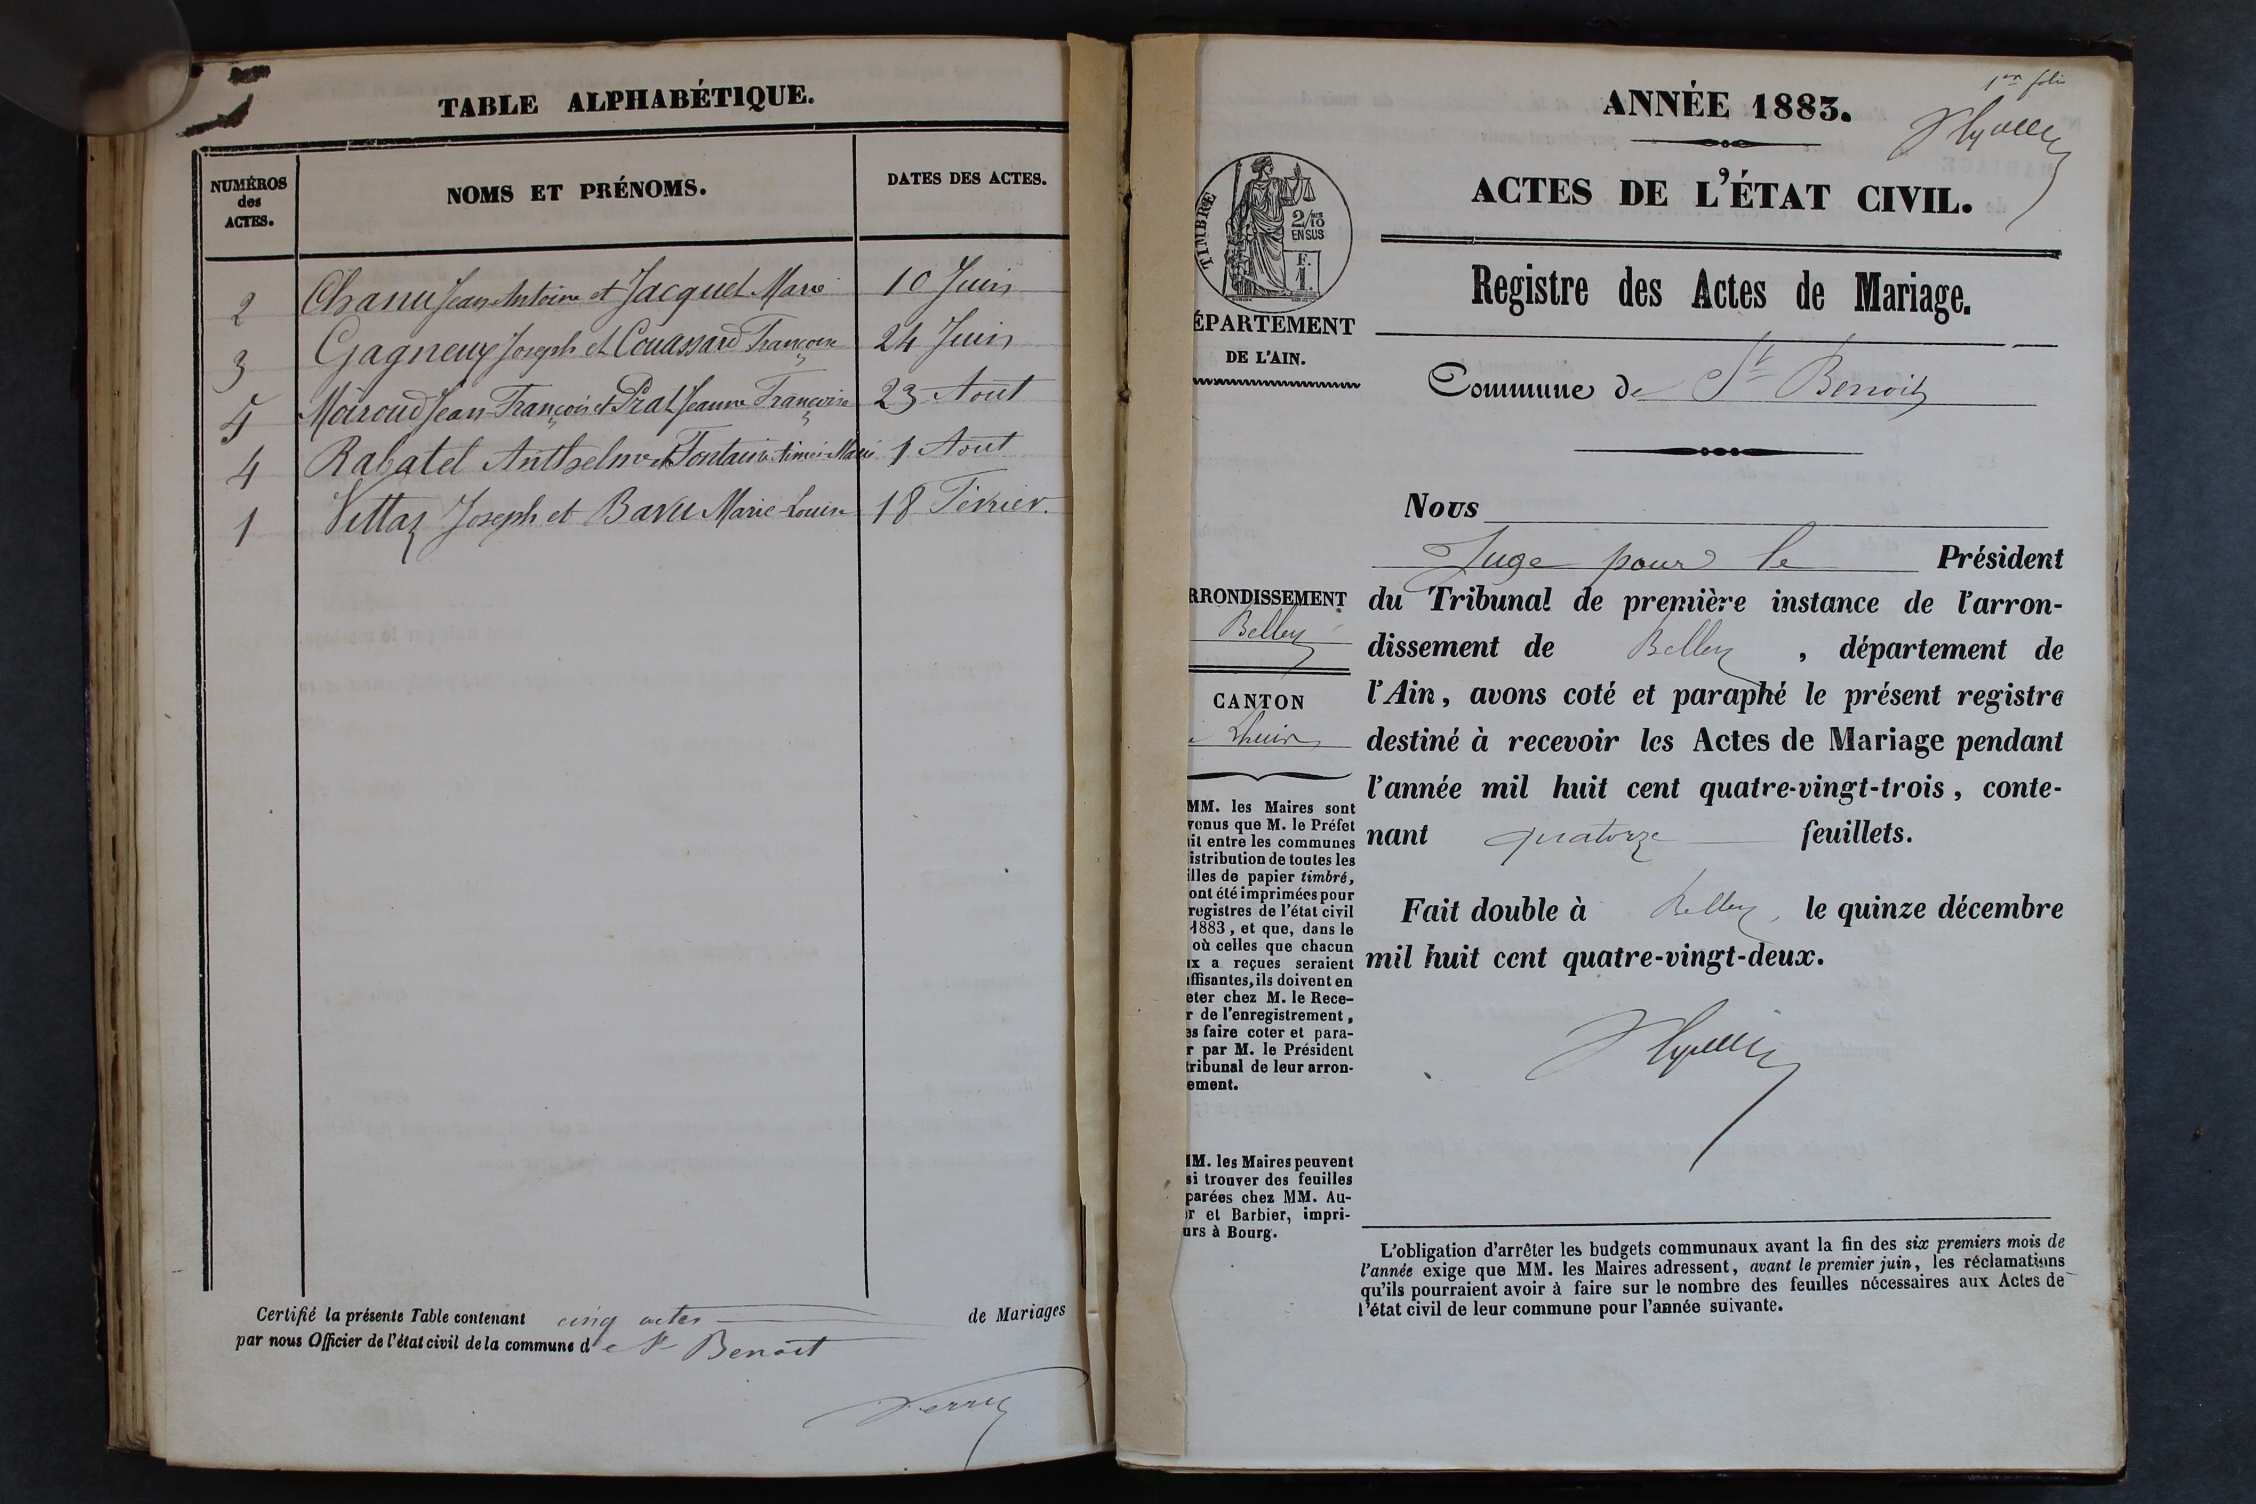 TABLE ALPHABÉTIQUE.
NUMÉROS
des
ACTES.
NOMS ET PRÉNOMS.
DATES DES ACTES.
2 Chanu Jean Antoine et Jacquet Marie 10 Juin
3 Gagneux Joseph et Couassard Françoise 24 Juin
5 Moiroud Jean François et Prat Jeanne Françoise 23 Aout
4 Rabatel Anthelme et Fontaine Marie 1 Aout
1 Vittaz Joseph et Bavu Marie Louise 18 Février.
Certifié la présente Table contenant cinq actes de Mariages
par nous Officier de l'état civil de la commune de St Benoit
1er folio
ANNÉE 1883.
ACTES DE L'ÉTAT CIVIL.
TIMBRE
2/10 ES
EN SUS
F.
1.
Registre des Actes de Mariage.
ÉPARTEMENT
DE L'AIN.
Commune de St Benoit
Nous
Juge pour le Président
du Tribunal de première instance de l'arron-
dissement de Belley, département de
l'Ain, avons coté et paraphé le présent registre
destiné à recevoir les Actes de Mariage pendant
l'année mil huit cent quatre-vingt-trois, conte-
nant quatorze feuillets.
Fait double à Belley, le quinze décembre
mil huit cent quatre-vingt-deux.
RRONDISSEMENT
Belley
CANTON
e Lhuis
MM. les Maires sont
venus que M. le Préfet
it entre les communes
istribution de toutes les
illes de papier timbré,
ont été imprimées pour
registres de l'état civil
1883, et que, dans le
où celles que chacun
ux a reçues seraient
ffisantes, ils doivent en
eter chez M. le Rece-
r de l'enregistrement,
es faire coter et para-
r par M. le Président
tribunal de leur arron-
ement.
MM. les Maires peuvent
si trouver des feuilles
parées chez MM. Au-
r et Barbier, impri-
urs à Bourg.
L'obligation d'arrêter les budgets communaux avant la fin des six premiers mois de
l'année exige que MM. les Maires adressent, avant le premier juin, les réclamations
qu'ils pourraient avoir à faire sur le nombre des feuilles nécessaires aux Actes de
l'état civil de leur commune pour l'année suivante.